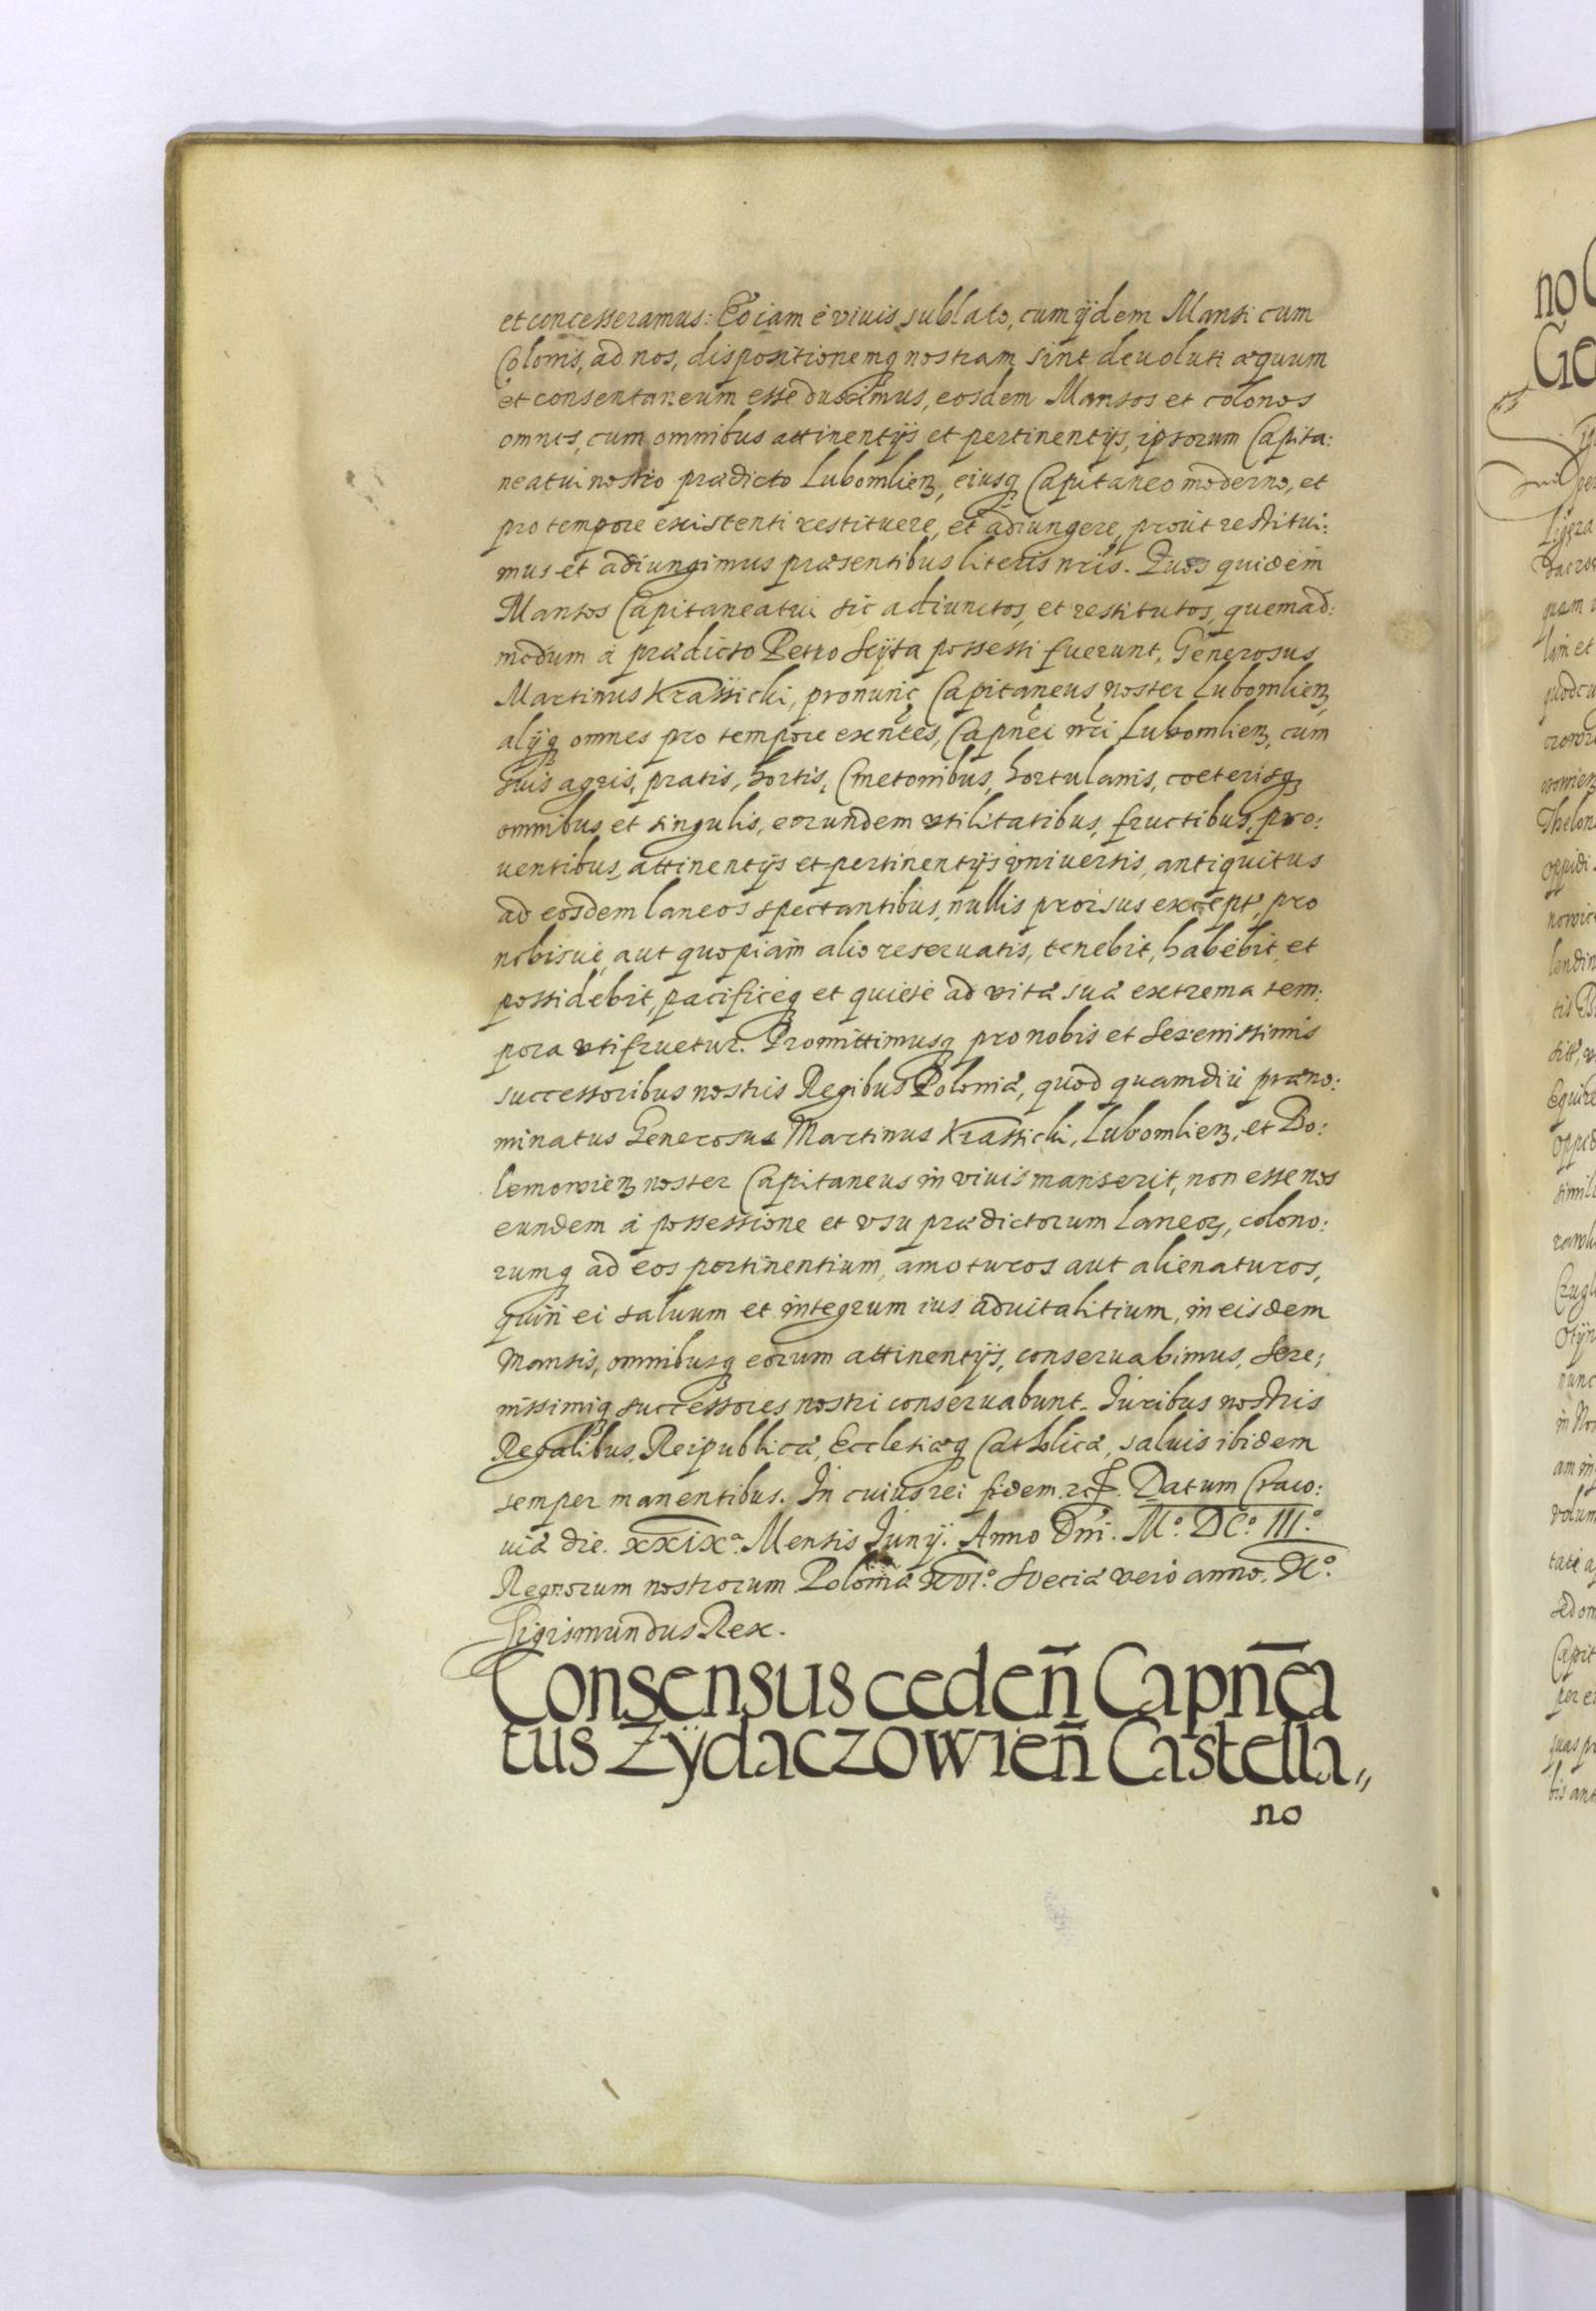 et concesseramus: Eo iam è viuis sublato, cum ijdem Mansi cum
Colonis, ad nos, dispositionemq nostram sint deuoluti æquum
et consentaneum esse duximus, eosdem Mansos et colonos
omnes, cum omnibus attinentijs et pertinentijs, ipsorum Capita:
neatui nostro prædicto Lubomlien, eiusq Capitaneo moderno, et
pro tempore existenti restituere, et adiungere, prout restitui:
mus et adiungimus præsentibus literis nris. Quos quidem
Mansos Capitaneatui sic adiunctos, et restitutos, quemad:
modum à prædicto Petro Scijta possessi fuerunt, Generosus
Martinus Krassicki, pronunc Capitaneus noster Lubomlien,
alijq omnes pro tempore exntes, Capnei nri Lubomlien, cum
suis agris, pratis, hortis, Cmetonibus, hortulanis, cœterisq
omnibus et singulis, eorundem vtilitatibus, fructibus, pro:
uentibus, attinentijs et pertinentijs vniuersis, antiquitus
ad eosdem laneos spectantibus, nullis prorsus except, pro
nobisuè, aut quopiam alio reseruatis, tenebit, habebit, et
possidebit, pacificèq et quietè ad vitæ suæ extrema tem:
pora vtifruetur. Promittimusq pro nobis et Serenissimis
successoribus nostris Regibus Poloniæ, quod quamdiu præno:
minatus Generosus Martinus Krassicki, Lubomlien, et Do:
lemowien noster Capitaneus in viuis manserit, non esse nos
eundem à possessione et vsu prædictorum laneor, colono:
rumq ad eos pertinentium, amoturos aut alienaturos,
quin ei saluum et integrum ius aduitalitium, in eisdem
Mansis, omnibusq eorum attinentijs, conseruabimus, Sere:
nissimiq successores nostri conseruabunt. Iuribus nostris
Regalibus, Reipublicæ, Ecclesiæq Catholicæ, saluis ibidem
semper manentibus. In cuius rei fidem etc. Datum Craco:
uiæ die. XXIXa. Mensis Iunij. Anno Dni. Mo. DCo. IIIo.
Regnorum nostrorum Poloniæ XVIo. Sueciæ verò anno. Xo.
Sigismundus Rex.
Consensus cedeñ Capnea
tus Zÿdaczowieñ Castella,,
no